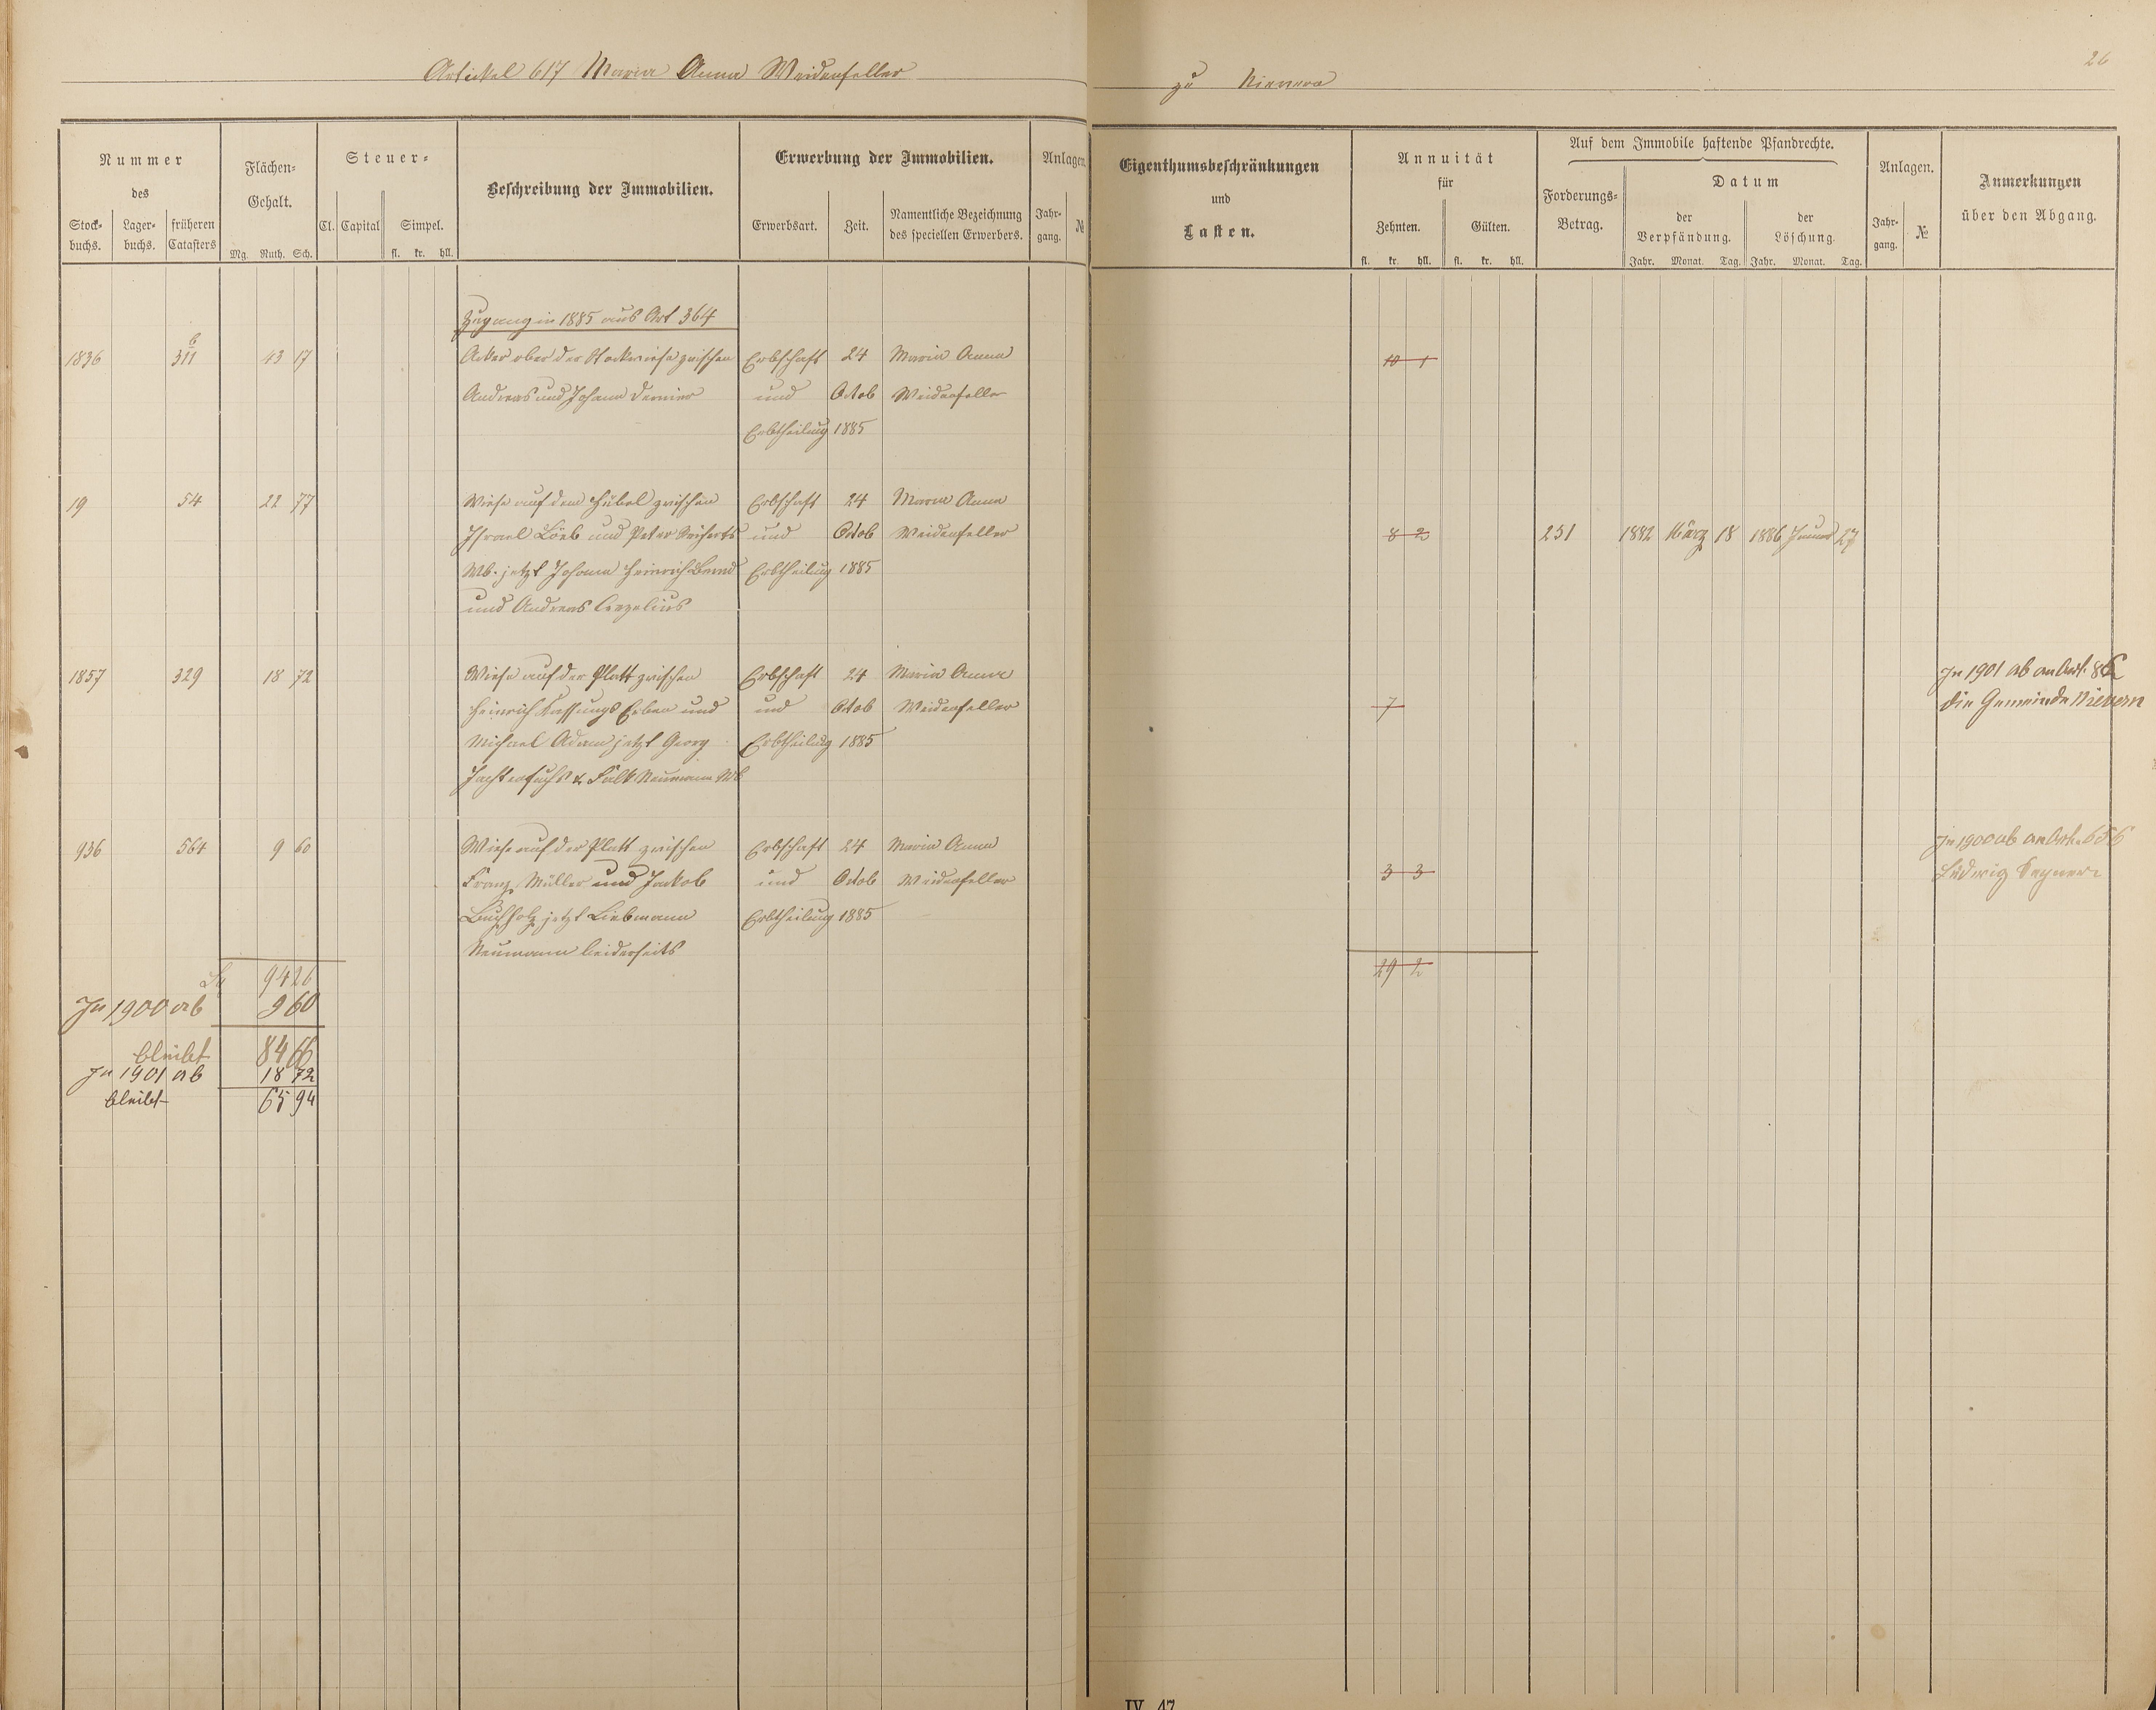 Artickel 617 Maria Anna Weidenfeller
zu Nievern
26
Nummer
des
Stock-
buchs.
Lager-
buchs.
früheren
Catasters
Flächen-
Gehalt.
Mg. Ruth. Sch.
Steuer-
Cl. Capital Simpel.
fl. kr. hll.
Beschreibung der Immobilien.
Erwerbung der Immobilien.
Erwerbsart. Zeit. Namentliche Bezeichnung
des speciellen Erwerbers.
Anlagen
Jahr-
gang.
№
Eigenthumsbeschränkungen
und
Lasten.
Annuität
für
Zehnten. Gülten.
fl. kr. hll. fl. kr. hll.
Auf dem Immobile haftende Pfandrechte.
Forderungs-
Betrag.
Datum
der
Verpfändung.
der
Löschung.
Jahr. Monat. Tag. Jahr. Monat. Tag.
Anlagen.
Jahr-
gang.
№
Anmerkungen
über den Abgang.
Zugang in 1885 aus Art 364
6
1836 311 43 17 Acker ober der Stockwiese zwischen Erbschaft 24 Maria Anna 10 1
Andreas und Johann und Octob Weidenfeller
Erbtheilung 1885
19 54 22 77 Wiese auf dem Hübel zwischen Erbschaft 24 Maria Anna
Israel Löeb und Peter und Octob Weidenfeller 8 2 251 1882 März 18 1886 Januar 27
Wb. jetzt Johann Heinrich Erbtheilung 1885
und Andreas
1857 329 18 72 Wiese auf der Platt zwischen Erbschaft 24 Maria Anna In 1901 ab an Art. 86
Heinrich Erben und und Octob Weidenfeller 7 die Gemeinde Nievern
Michael Adam jetzt Georg Erbtheilung 1885
& Falk Neumann Wb
936 564 9 60 Wiese auf der Platt zwischen Erbschaft 24 Maria Anna In 1900 ab an Art. 656
Franz Müller und Jackob und Octob Weidenfeller 3 3 Ludwig
Buchholz jetzt Liebmann Erbtheilung 1885
Neumann beiderseits
94 26 29 2
In 1900 ab 9 60
bleibt 84 66
In 1901 ab 18 72
bleibt 65 94
IV. 47